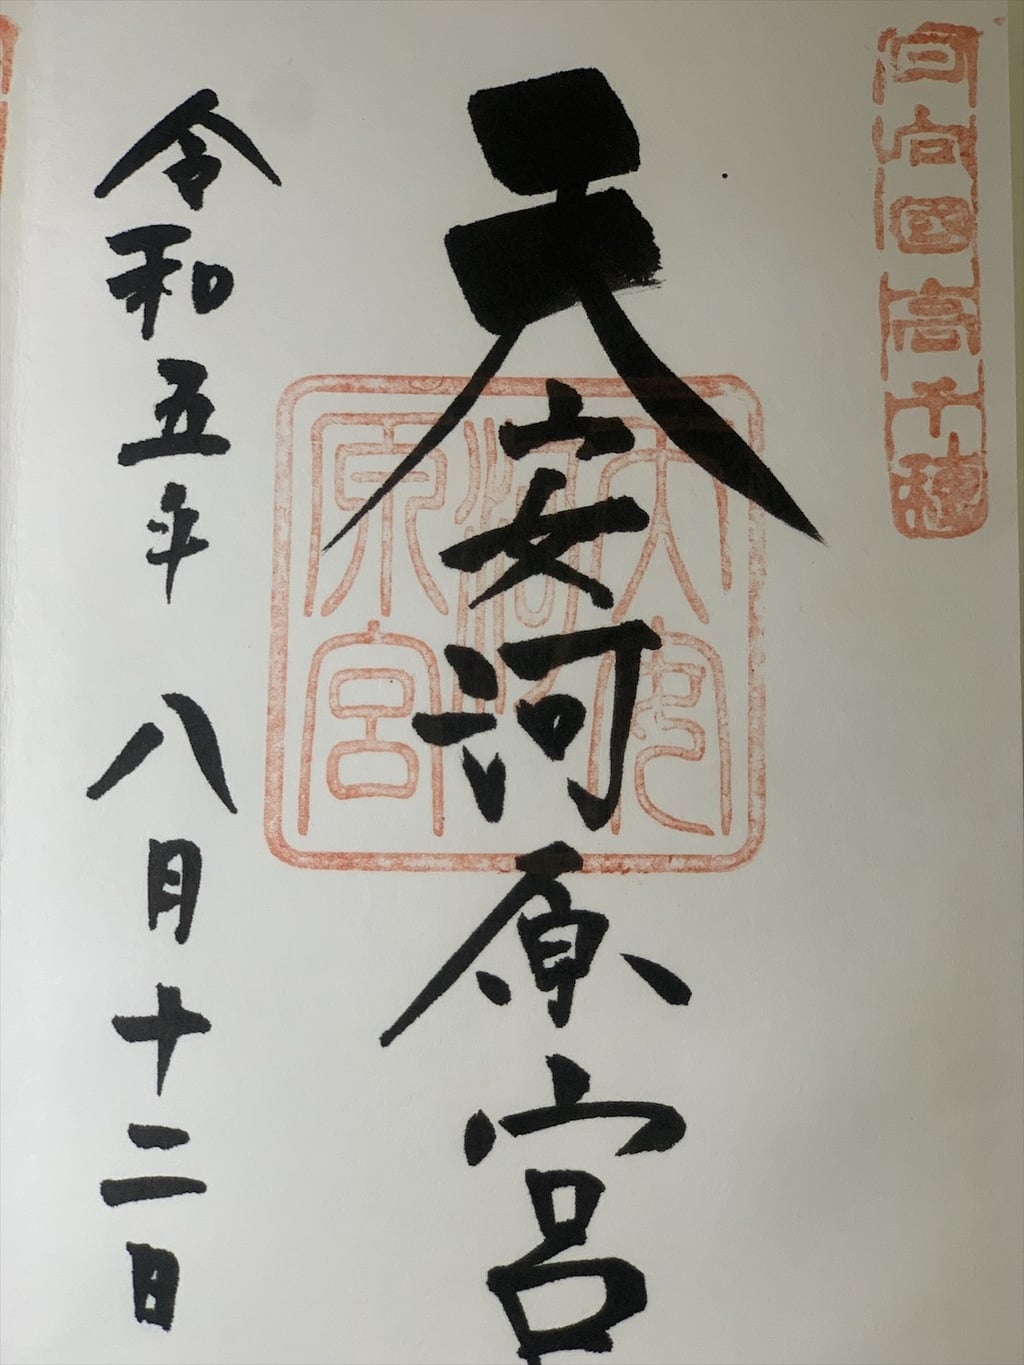 日向国高千穂
天安河原宮
天安河原宮
令和五年 八月十二日